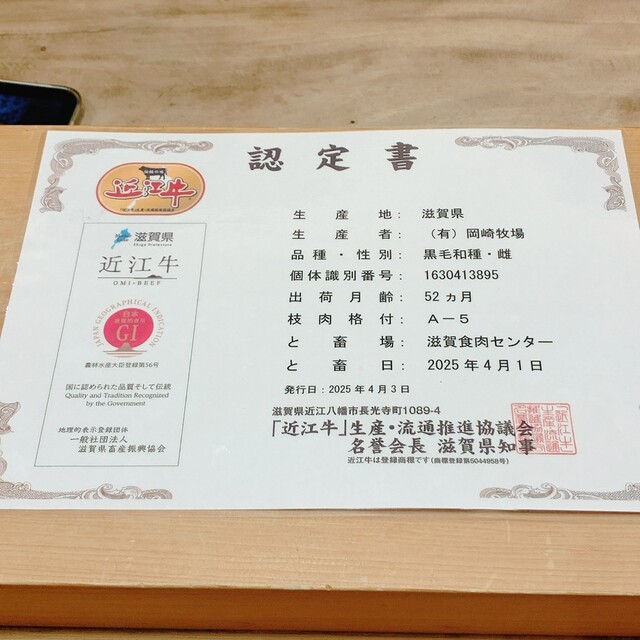 認定書
近江牛
滋賀県
Shiga Prefecture
近江牛
OMI-BEEF
JAPAN GEOGRAPHICAL INDICATION
日本
地理的表示
GI
農林水産大臣登録第56号
国に認められた品質そして伝統
Quality and Tradition Recognized
by the Government
地理的表示登録団体
一般社団法人
滋賀県畜産振興協会
生産地：滋賀県
生産者：（有）岡崎牧場
品種・性別：黒毛和種・雌
個体識別番号：1630413895
出荷月齢：52ヵ月
枝肉格付：A－5
と畜場：滋賀食肉センター
と畜日：2025年4月1日
発行日：2025年4月3日
滋賀県近江八幡市長光寺町1089-4
「近江牛」生産・流通推進協議会
名誉会長 滋賀県知事
近江牛は登録商標です（商標登録第5044958号）